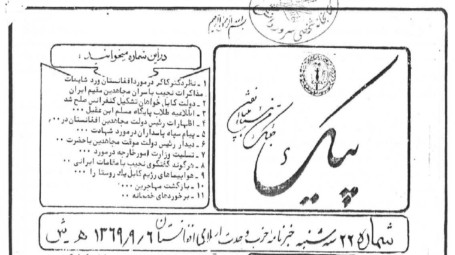 در این شماره میخوانید:
۱ - نظر دکتر کاکر در مورد افغانستان ورد شایعات
مذاکرات نجیب با سران مجاهدین مقیم ایران
۲ - دولت کابل خواهان تشکیل کنفرانس صلح شد
۳ - اطلاعیه طلاب پایگاه مسلم ابن عقیل ...
۴ - اظهارات رئیس دولت مجاهدین افغانستان در ...
۵ - پیام سپاه پاسداران در مورد شهادت ...
۶ - دیدار رئیس دولت موقت مجاهدین با حضرت ...
۷ - تسلیت وزارت امور خارجه در مورد ...
۸ - هرگونه گفتگوی نجیب با مقامات ایرانی ...
۹ - هواپیماهای رژیم کابل یک روستا را ...
۱۰ - بازگشت مهاجرین ...
۱۱ - برخوردهای خصمانه ...
پیک
شماره ۲۲ سه شنبه خبرنامه حزب وحدت اسلامی افغانستان ۱۳۶۹/۹/۶ ه ش